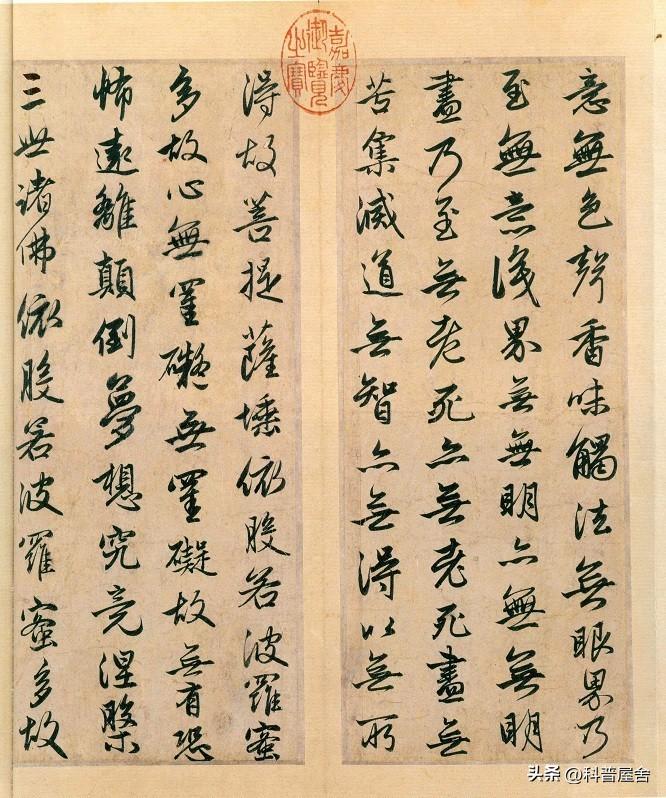 嘉慶御覽之寶
意無色聲香味觸法無眼界乃
至無意識界無無明亦無無明
盡乃至無老死亦無老死盡無
苦集滅道無智亦無得以無所
得故菩提薩埵依般若波羅蜜
多故心無罣礙無罣礙故無有恐
怖遠離顛倒夢想究竟涅槃
三世諸佛依般若波羅蜜多故
头条 @科普屋舍